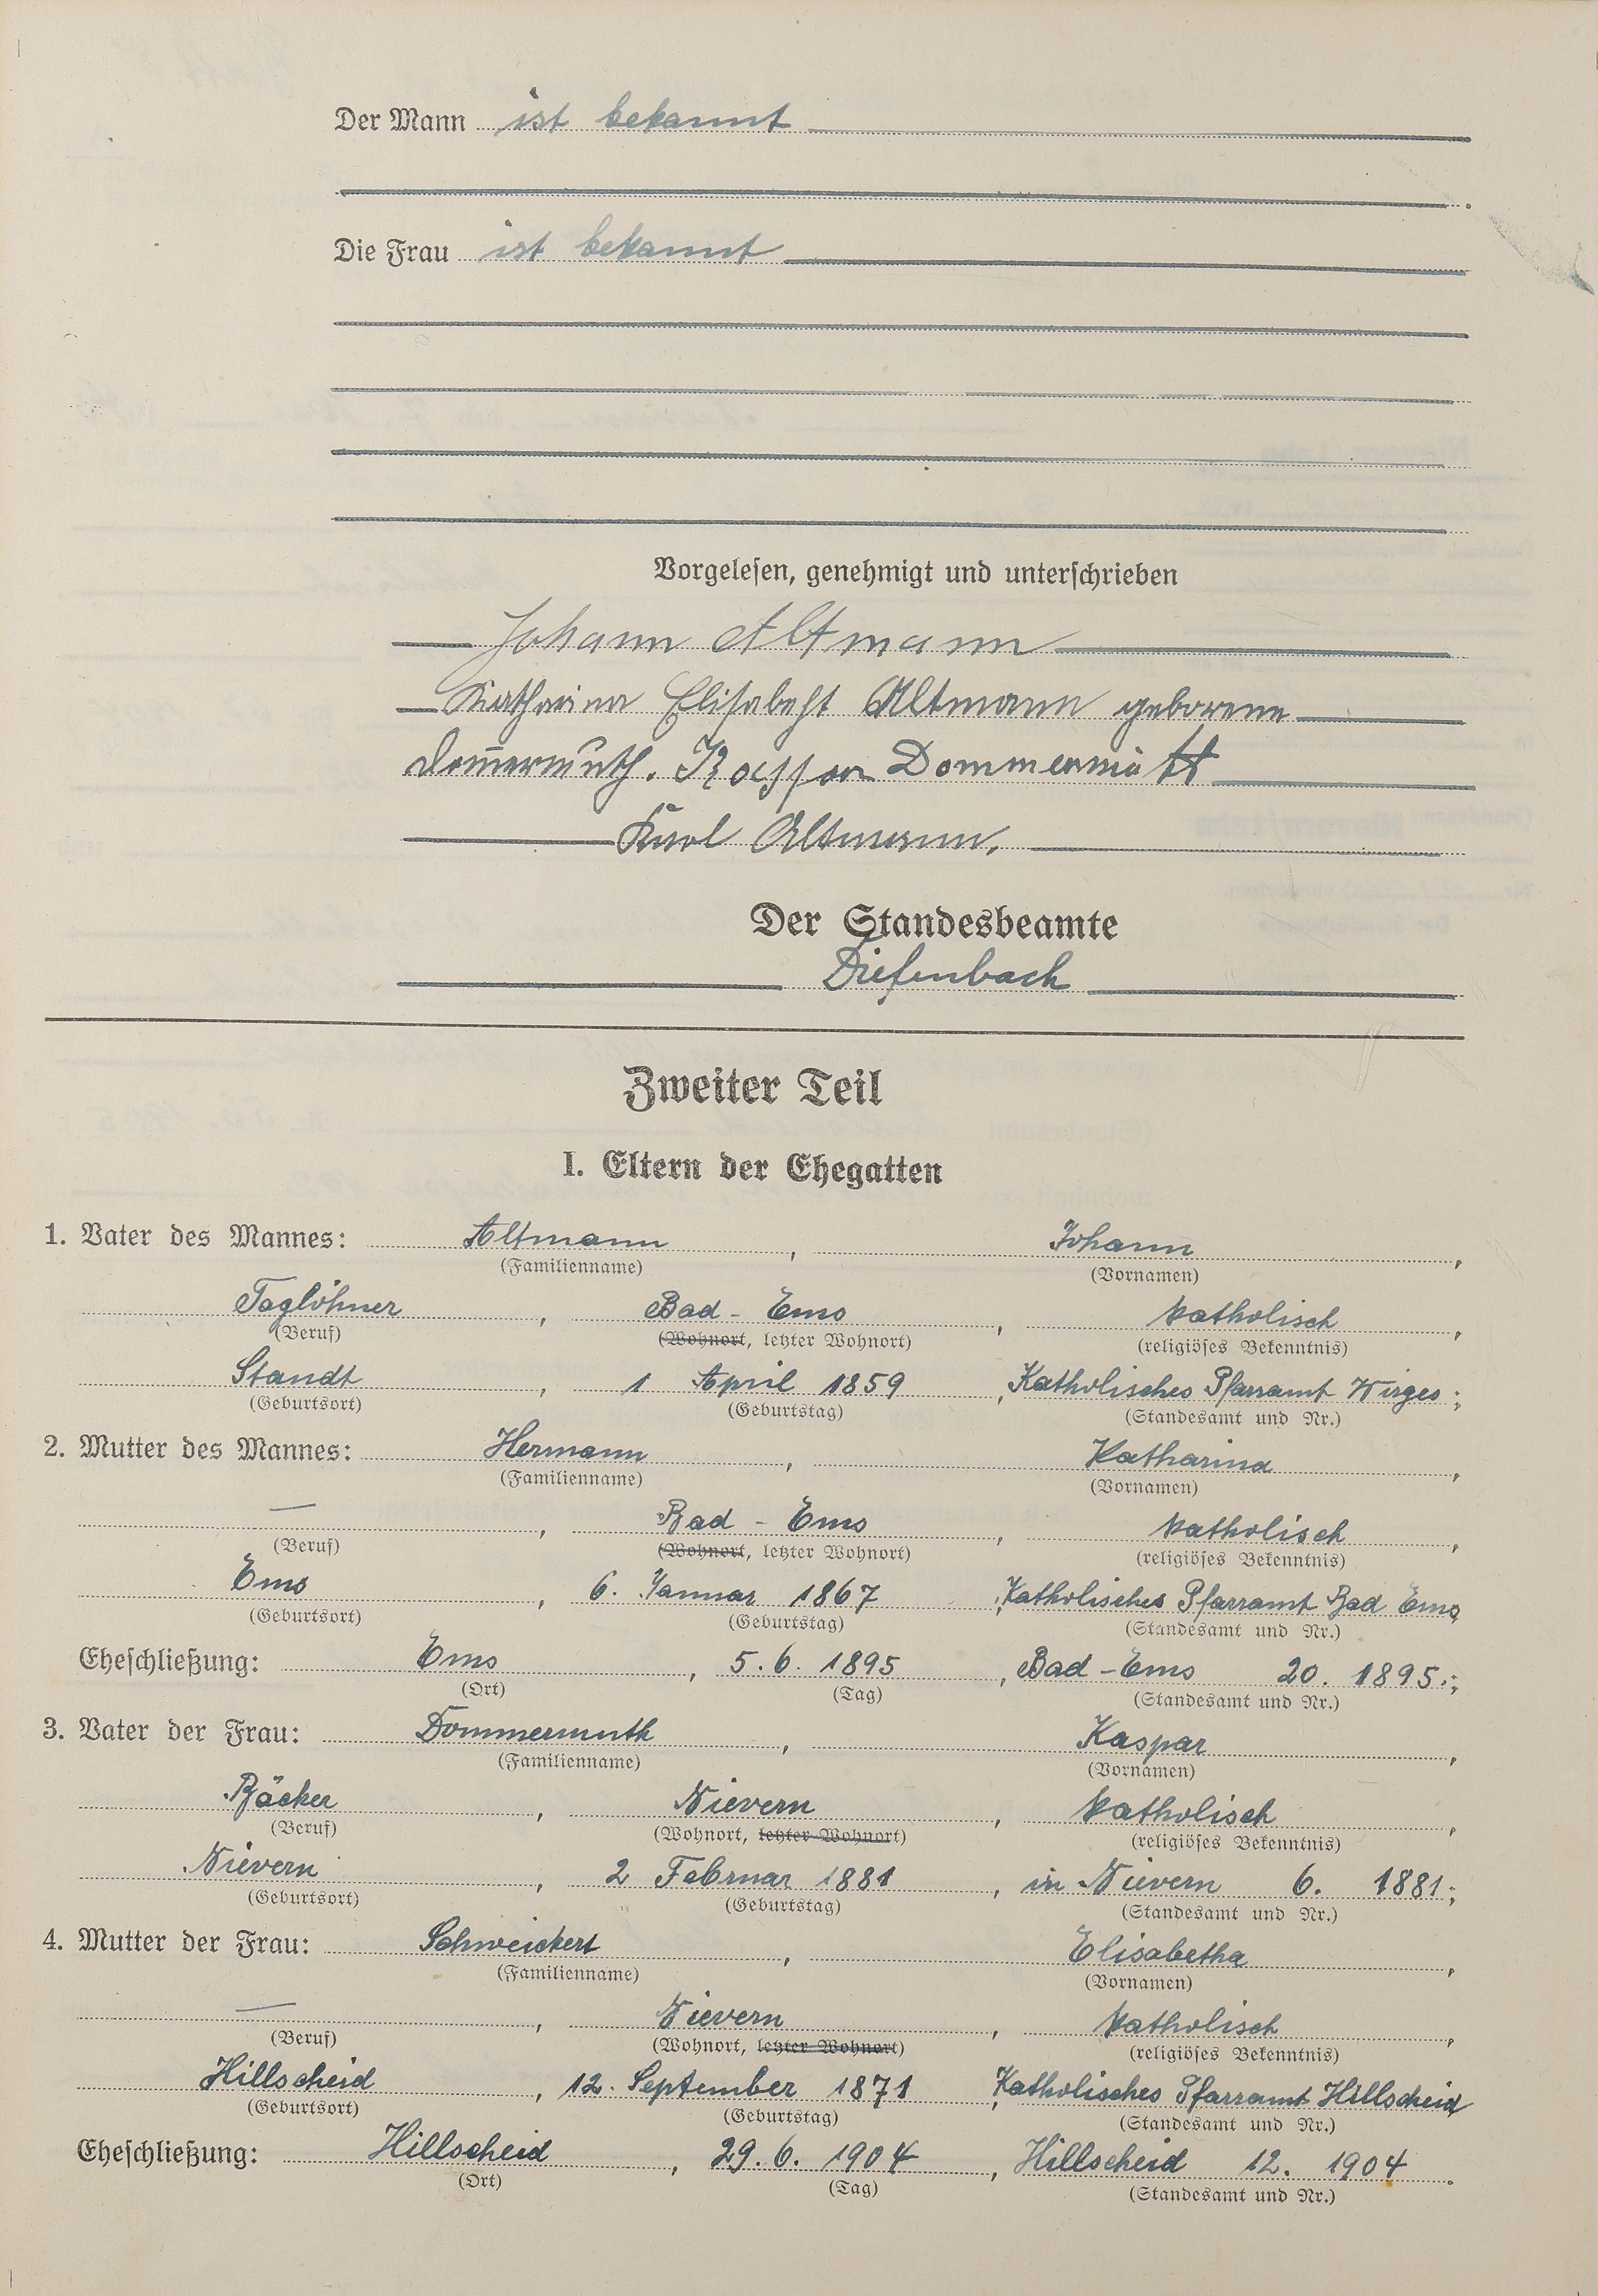 Der Mann ist bekannt
Die Frau ist bekannt
Vorgelesen, genehmigt und unterschrieben
Johann Altmann
Katharina Elisabeht Altmann geborene
Dom̄ermuth. Kasspar Dommermutt
Karl Altmann.
Der Standesbeamte
Diefenbach
Zweiter Teil
I. Eltern der Ehegatten
1. Vater des Mannes: Altmann, Johann,
(Familienname) (Vornamen)
Taglöhner, Bad-Ems, katholisch,
(Beruf) (Wohnort, letzter Wohnort) (religiöses Bekenntnis)
Standt, 1 April 1859, Katholisches Pfarramt Wirges;
(Geburtsort) (Geburtstag) (Standesamt und Nr.)
2. Mutter des Mannes: Hermann, Katharina,
(Familienname) (Vornamen)
—, Bad-Ems, katholisch,
(Beruf) (Wohnort, letzter Wohnort) (religiöses Bekenntnis)
Ems, 6. Januar 1867, Katholisches Pfarramt Bad Ems
(Geburtsort) (Geburtstag) (Standesamt und Nr.)
Eheschließung: Ems, 5.6.1895, Bad-Ems 20. 1895.;
(Ort) (Tag) (Standesamt und Nr.)
3. Vater der Frau: Dommermuth, Kaspar,
(Familienname) (Vornamen)
Bäcker, Nievern, katholisch,
(Beruf) (Wohnort, letzter Wohnort) (religiöses Bekenntnis)
Nievern, 2 Februar 1881, in Nievern 6. 1881;
(Geburtsort) (Geburtstag) (Standesamt und Nr.)
4. Mutter der Frau: Schweickert, Elisabetha,
(Familienname) (Vornamen)
—, Nievern, katholisch,
(Beruf) (Wohnort, letzter Wohnort) (religiöses Bekenntnis)
Hillscheid, 12. September 1871, Katholisches Pfarramt Hillscheid
(Geburtsort) (Geburtstag) (Standesamt und Nr.)
Eheschließung: Hillscheid, 29.6.1904, Hillscheid 12. 1904.
(Ort) (Tag) (Standesamt und Nr.)